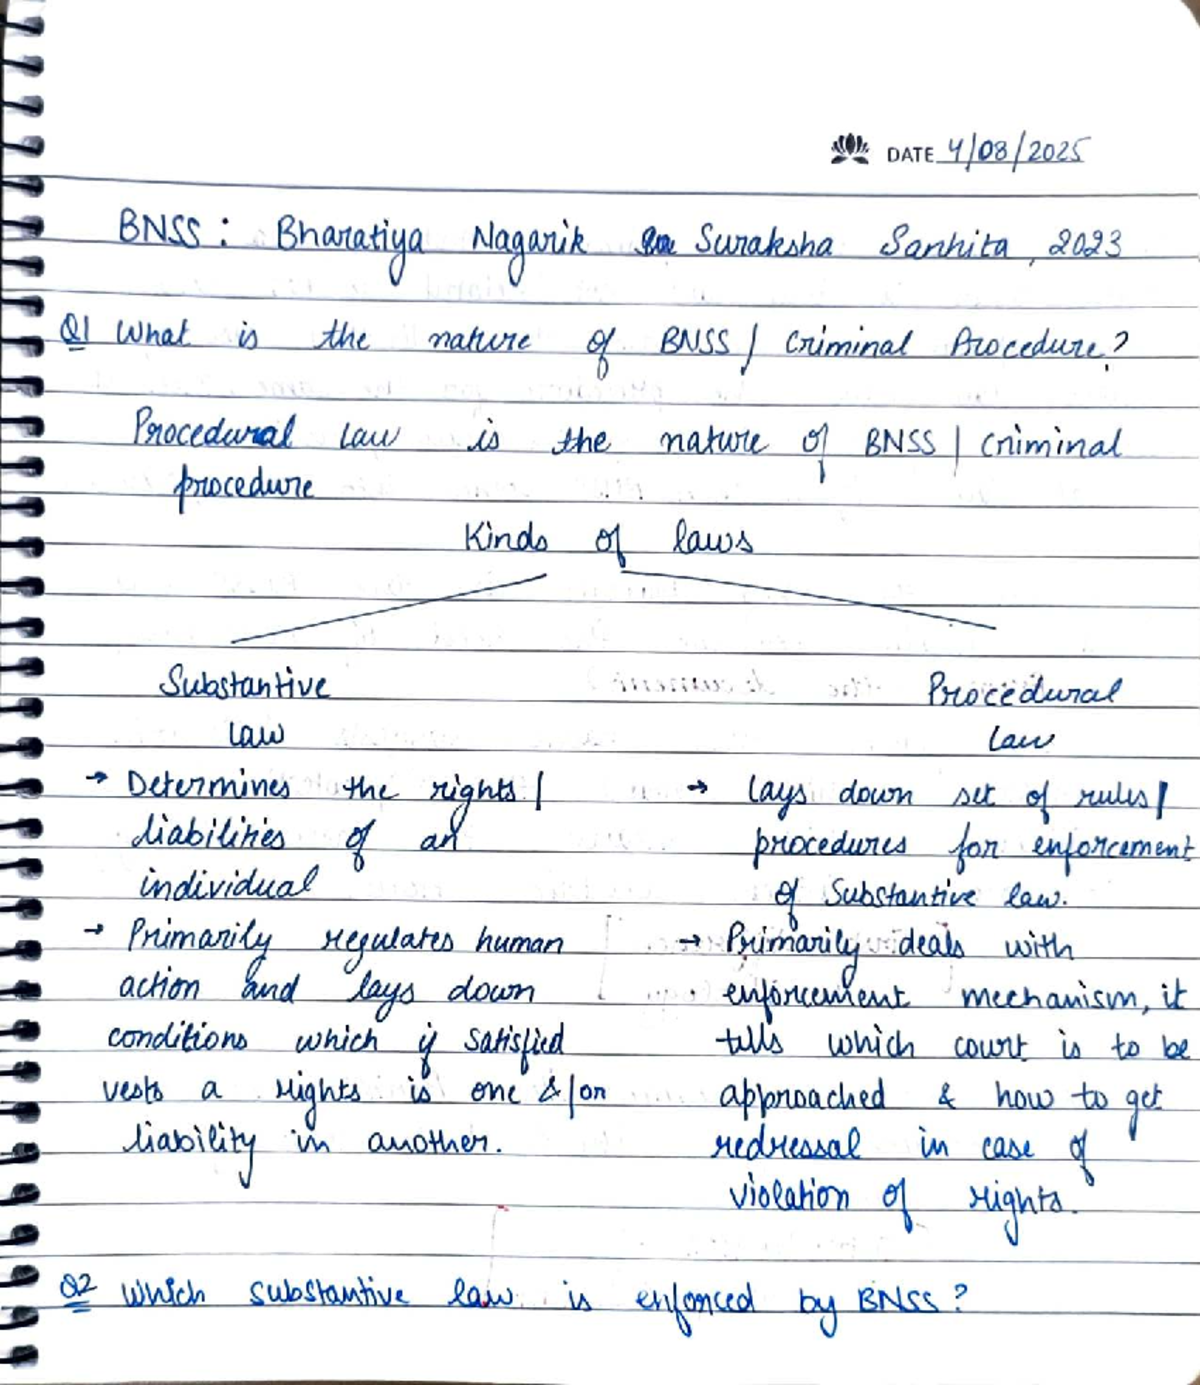 DATE 4/08/2025
BNSS : Bharatiya Nagarik Suraksha Sanhita, 2023
Q1 What is the nature of BNSS / Criminal Procedure?
Procedural law is the nature of BNSS / criminal
procedure
Kinds of laws
Substantive
law
Procedural
law
→ Determines the rights /
liabilities of an
individual
→ Primarily regulates human
action and lays down
conditions which if satisfied
vests a rights is one &/or
liability in another.
→ lays down set of rules/
procedures for enforcement
of Substantive law.
→ Primarily deals with
enforcement mechanism, it
tells which court is to be
approached & how to get
redressal in case of
violation of rights.
Q2 Which substantive law is enforced by BNSS?